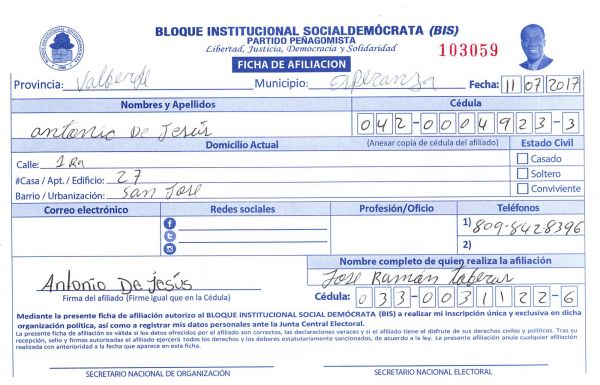 BLOQUE INSTITUCIONAL SOCIALDEMÓCRATA (BIS)
PARTIDO PEÑAGOMISTA
Libertad, Justicia, Democracia y Solidaridad
103059
FICHA DE AFILIACION
Provincia: Valverde Municipio: Esperanza Fecha: 11 07 2017
Nombres y Apellidos Cédula
Antonio De Jesús 042-0004923-3
Domicilio Actual (Anexar copia de cédula del afiliado) Estado Civil
Calle: 1Ra Casado
#Casa / Apt. / Edificio: 27 Soltero
Barrio / Urbanización: San Jose Conviviente
Correo electrónico Redes sociales Profesión/Oficio Teléfonos
1) 809-842-8396
2)
Nombre completo de quien realiza la afiliación
Antonio De Jesús Jose Ramón
Firma del afiliado (Firme igual que en la Cédula) Cédula: 033-0031122-6
Mediante la presente ficha de afiliación autorizo al BLOQUE INSTITUCIONAL SOCIAL DEMÓCRATA (BIS) a realizar mi inscripción única y exclusiva en dicha
organización política, así como a registrar mis datos personales ante la Junta Central Electoral.
La presente ficha de afiliación es válida si los datos ofrecidos por el afiliado son correctos, las declaraciones veraces y si el afiliado tiene el disfrute de sus derechos civiles y políticos. Tras su
recepción, sello y firmas autorizadas el afiliado ejercerá todos los derechos y los deberes estatutariamente sancionados, de acuerdo a la ley. La presente afiliación anula cualquier afiliación
realizada con anterioridad a la fecha que aparece en esta ficha.
SECRETARIO NACIONAL DE ORGANIZACIÓN SECRETARIO NACIONAL ELECTORAL